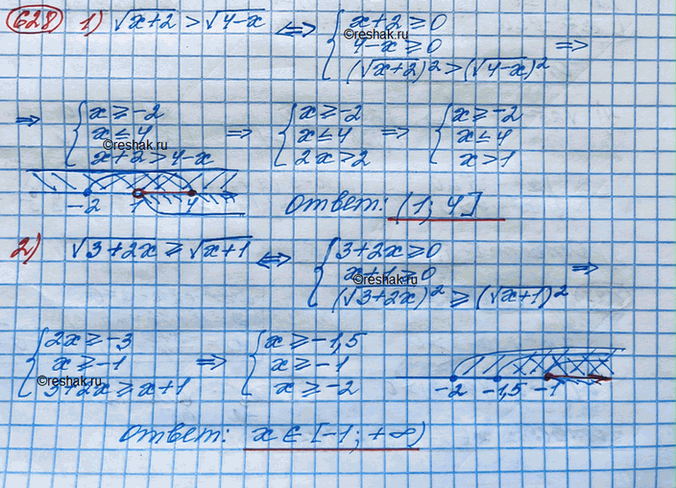 628 1) √x+2 > √4-x ⇔ { x+2 ≥ 0
4-x ≥ 0 ⇒
(√x+2)² > (√4-x)²
©reshak.ru
⇒ { x ≥ -2 ⇒ { x ≥ -2 ⇒ { x ≥ -2
x ≤ 4 x ≤ 4 x ≤ 4
x+2 > 4-x 2x > 2 x > 1
©reshak.ru
-2 1 4 ответ: (1; 4]
2) √3+2x ≥ √x+1 ⇔ { 3+2x ≥ 0
x+1 ≥ 0 ⇒
(√3+2x)² ≥ (√x+1)²
©reshak.ru
{ 2x ≥ -3 ⇒ { x ≥ -1,5
x ≥ -1 x ≥ -1
3+2x ≥ x+1 x ≥ -2
©reshak.ru
-2 -1,5 -1
ответ: x ∈ [-1; +∞)